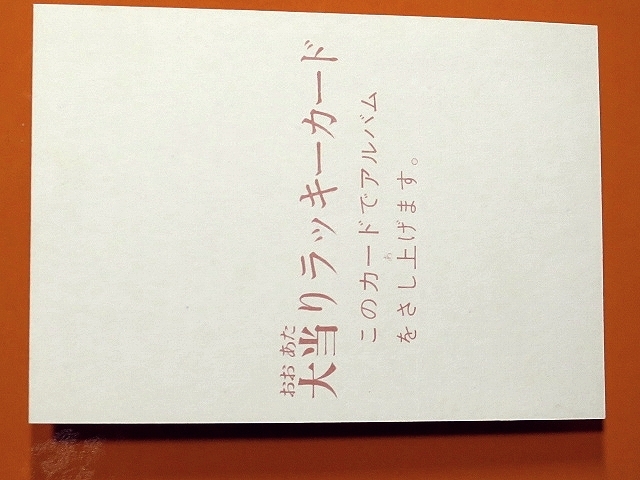 おおあた
大当りラッキーカード
このカードでアルバム
あ
をさし上げます。